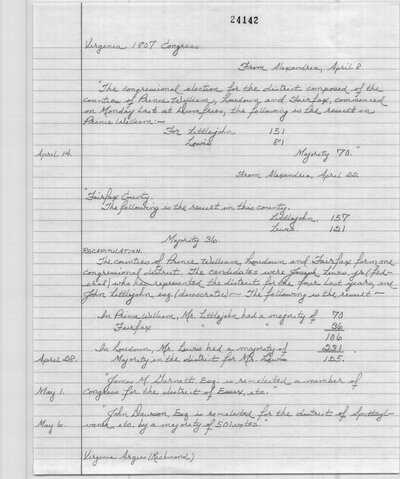 24142
Virginia 1807 Congress
From Alexandria, April 8
"The congressional election for the district composed of the
counties of Prince William, Loudoun and Fairfax, commenced
on Monday last at Dumfries, the following is the result in
Prince William:—
For Littlejohn 151
Lewis 81
April 14. Majority 70."
From Alexandria, April 22
"Fairfax County.
The following is the result in this county.
Littlejohn 157
Lewis. 121
Majority 36.
RECAPITULATION.
The counties of Prince William, Loudoun and Fairfax form one
congressional district. The candidates were Joseph Lewis, jr (fed-
eral) who has represented the district for the four last years, and
John Littlejohn, esq. (democratic)— The following is the result—
In Prince William, Mr. Littlejohn had a majority of 70
Fairfax " " 36
106
In Loudoun, Mr. Lewis had a majority of 231
April 28. Majority in the district for Mr. Lewis 125."
"James M. Garnett, Esq. is re-elected a member of
May 1. Congress for the district of Essex, etc."
"John Dawson, Esq. is re-elected for the district of Spottsyl-
May 6. vania, etc. by a majority of 501 votes."
Virginia Argus (Richmond)